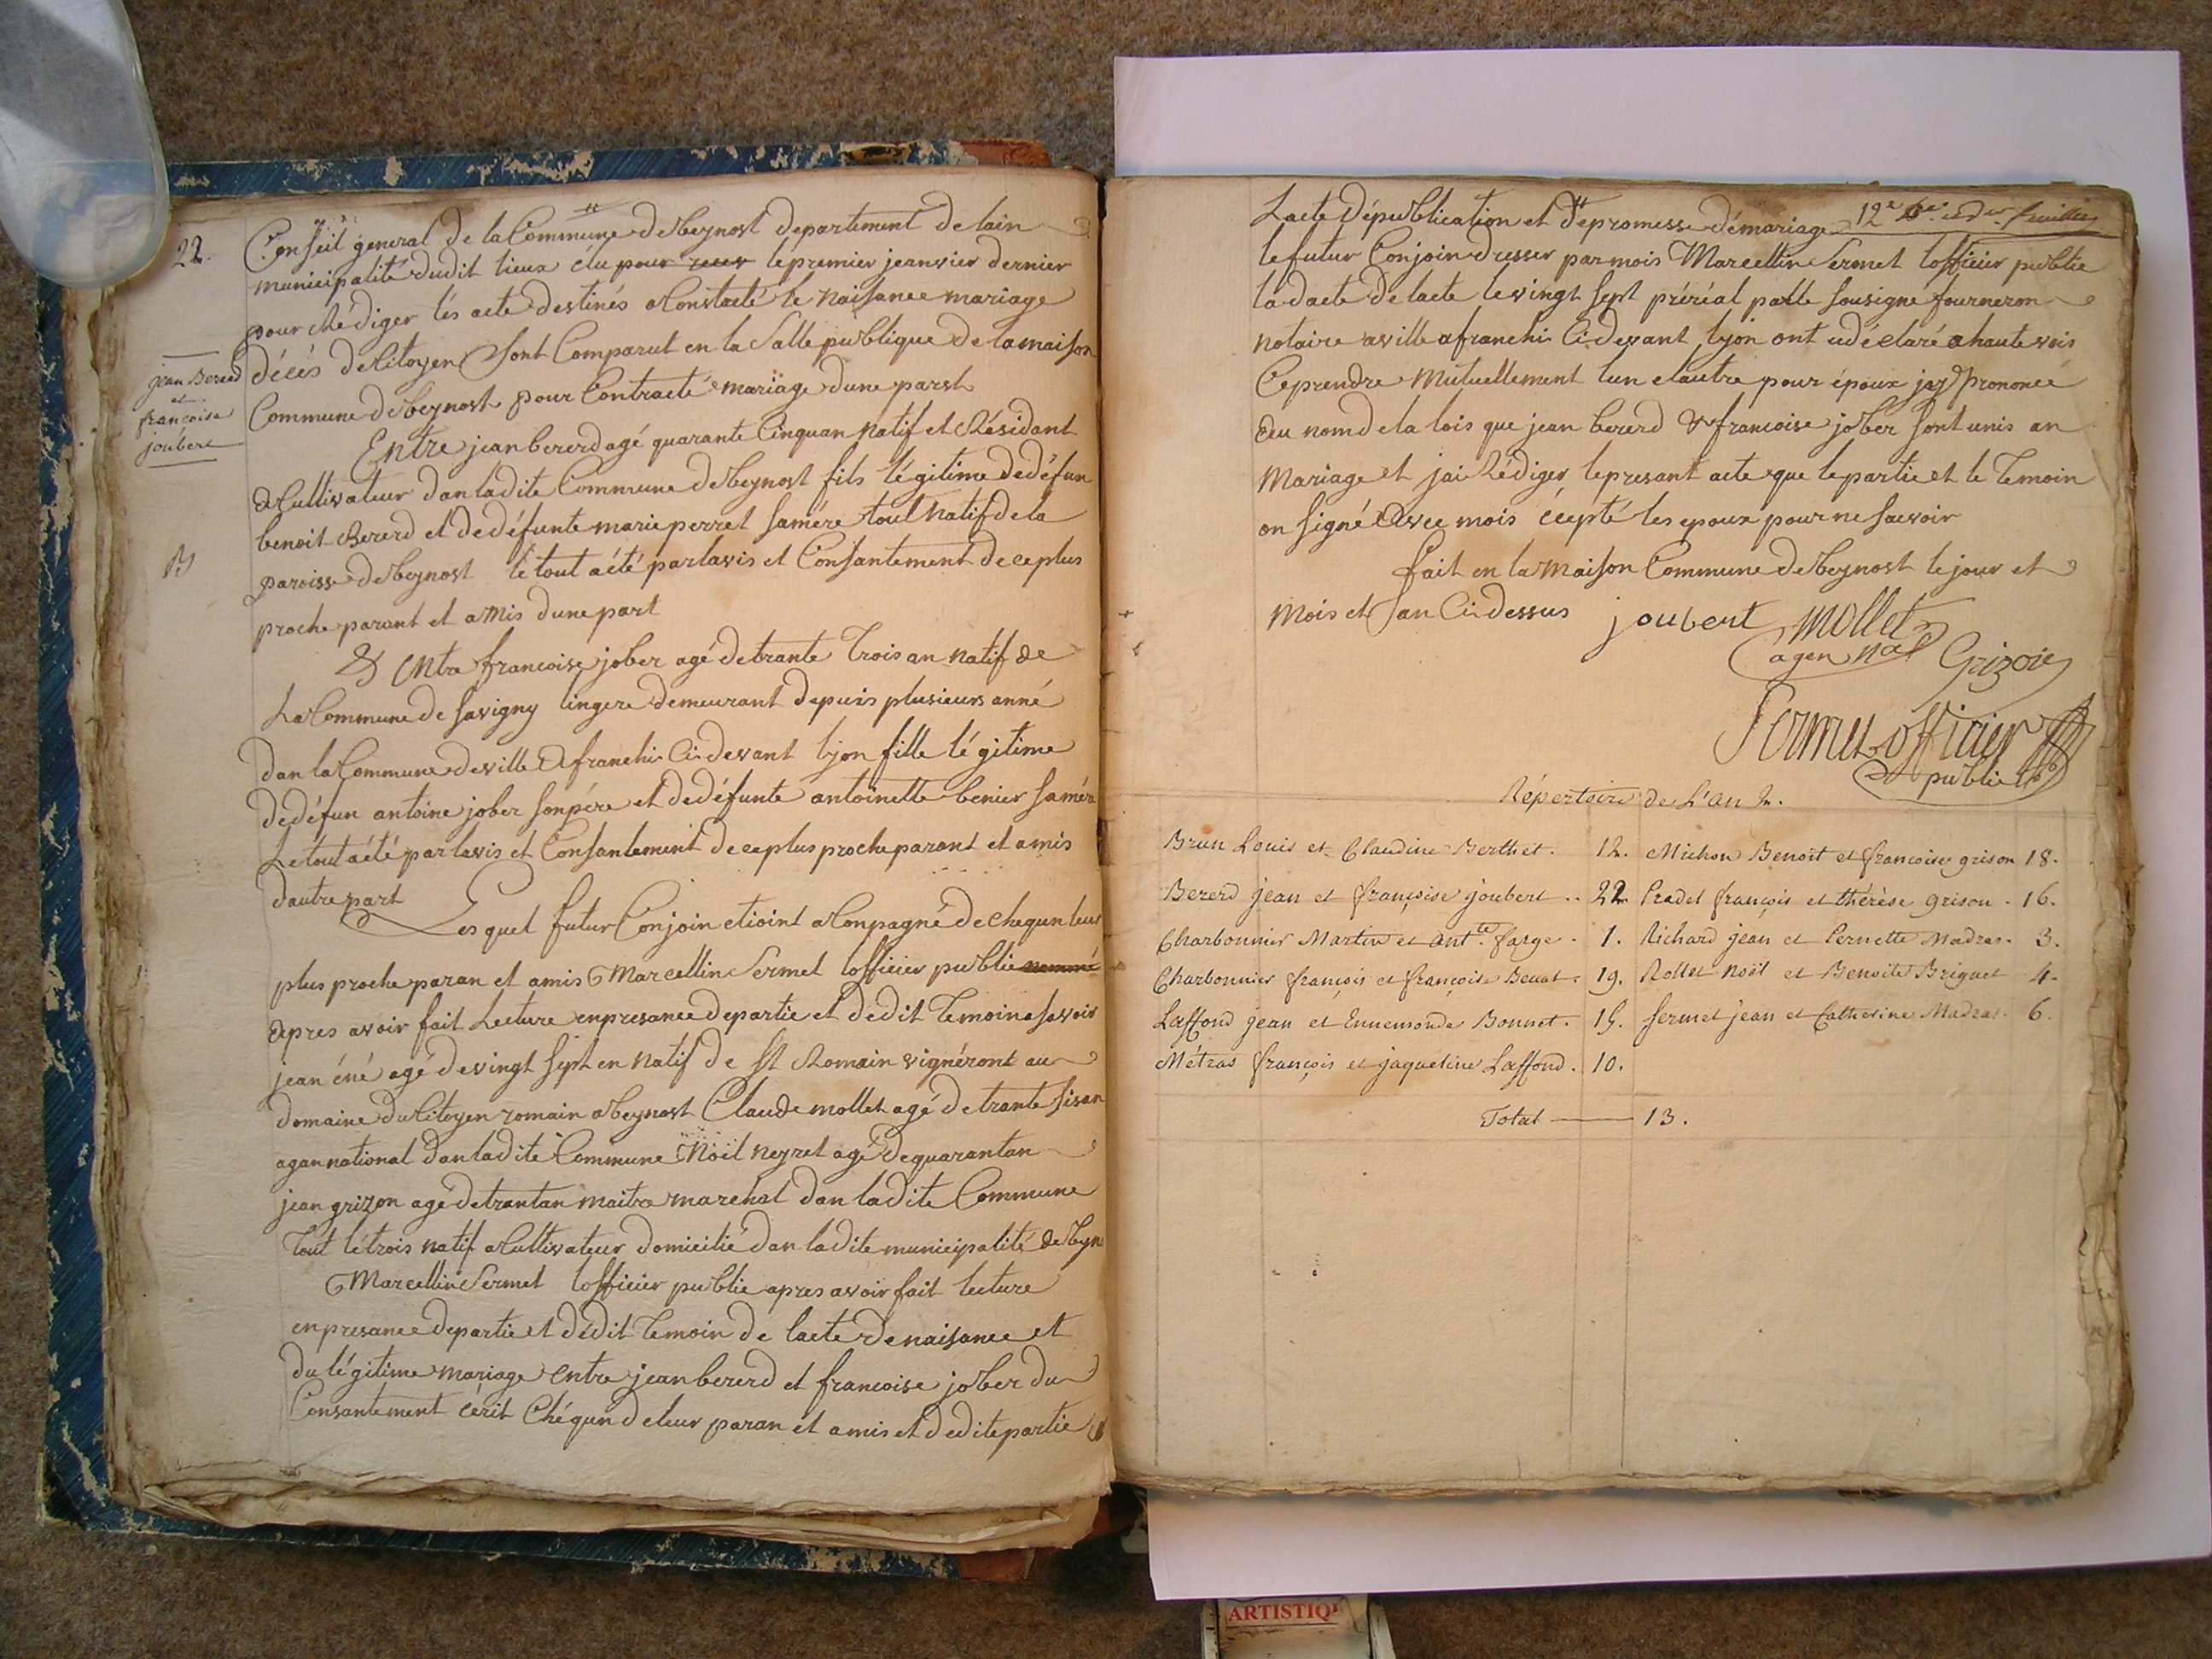 22.
Conseil general de la Commune de beynost departement de lain
municipalité dudit lieux élu pour recev le premier jeanvier dernier
pour Rédiger lés acte destinés a Constacté le naisance mariage
décés de Citoyen sont Comparut en la Salle publique de la maison
Commune de beynost pour Contracté mariage dune parst
jean Bererd
et
francoise
joubert
Entre jean bererd agé quarante Cinquan natif et Résidant
& Cultivateur dan ladite Commune de beynost fils légitime de défun
benoit Bererd et de défunte marie perret samére tout natif de la
paroisse de beynost le tout a été par lavis et Consantement de ce plus
proche parant et amis dune part
& Entre francoise jober agé de trante Trois an natif de
La Commune de Savigny lingere demeurant depuis plusieurs anné
dan la Commune de ville Afranchi Ci devant lyon fille légitime
de défun antoine jober son pére et de défunte antoinette benier samére
Le tout a été par lavis et Consantement de ce plus proche parant et amis
dautre part Les quel futur Conjoin etioint a Conpagné de chequn leur
plus proche paran et amis Marcellin Sermet lofficier public nommé
apres avoir fait Lecture enpresance de partie et dedit Temoin a savoir
jean éné agé de vingt sept en natif de St Romain vignéront au
domaine du Citoyen romain a beynost Claude mollet agé de trante sisan
agan national dan ladite Commune Noël neyret agé de quarantan
jean grizon agé de trantan maitre marchal dan ladite Commune
Tout lé trois natif a Cultivateur domicilié dan ladite municipalité de beyn
Marcellin Sermet lofficier public apres avoir fait lecture
enpresance de partie et dédit Temoin de lacte de naisance et
du légitime mariage entre jean bererd et francoise jober du
Consantement cérit Chéqun deleur paran et amis et de dite partie
Lacte dépublication et depromesse démariage 12e et der feuillet
le futur Conjoin dresser par mois Marcellin Sermet lofficier public
la dacte de lacte le vingt sept préréal par le sousigne fourneron
notaire a ville afranchi Ci devant lyon ont déclaré a haute vois
Ceprendre Mutuellement lun elautre pour époux jay prononcé
au nom de la lois que jean bererd & francoise jober sont unis an
Mariage et jai Rédiger le presant acte que le partie et le Temoin
on signé Avec mois écepté les epoux pour ne savoir
fait en la maison Commune de beynost le jour et
mois et lan Ci dessus joubert mollet
agen nal Grizon
Sermet officier
public
Répertoire de L'an 2.
Brun Louis et Claudine Berthet. 12. Michon Benoit et francoise grison 18.
Bererd jean et françoise joubert .. 22 Pradel françois et thérèse grison . 16.
Charbonnier Martin et Antte. farge . 1. Richard jean et Pernette Madras. 3.
Charbonnier françois et françoise Benat . 19. Rollet noël et Benoite Briguet 4.
Laffond jean et Ennemonde Bonnet. 15. Sermet jean et Catherine Madras. 6.
Métras françois et jaqueline Laffond . 10.
Total —— 13.
ARTISTIQ